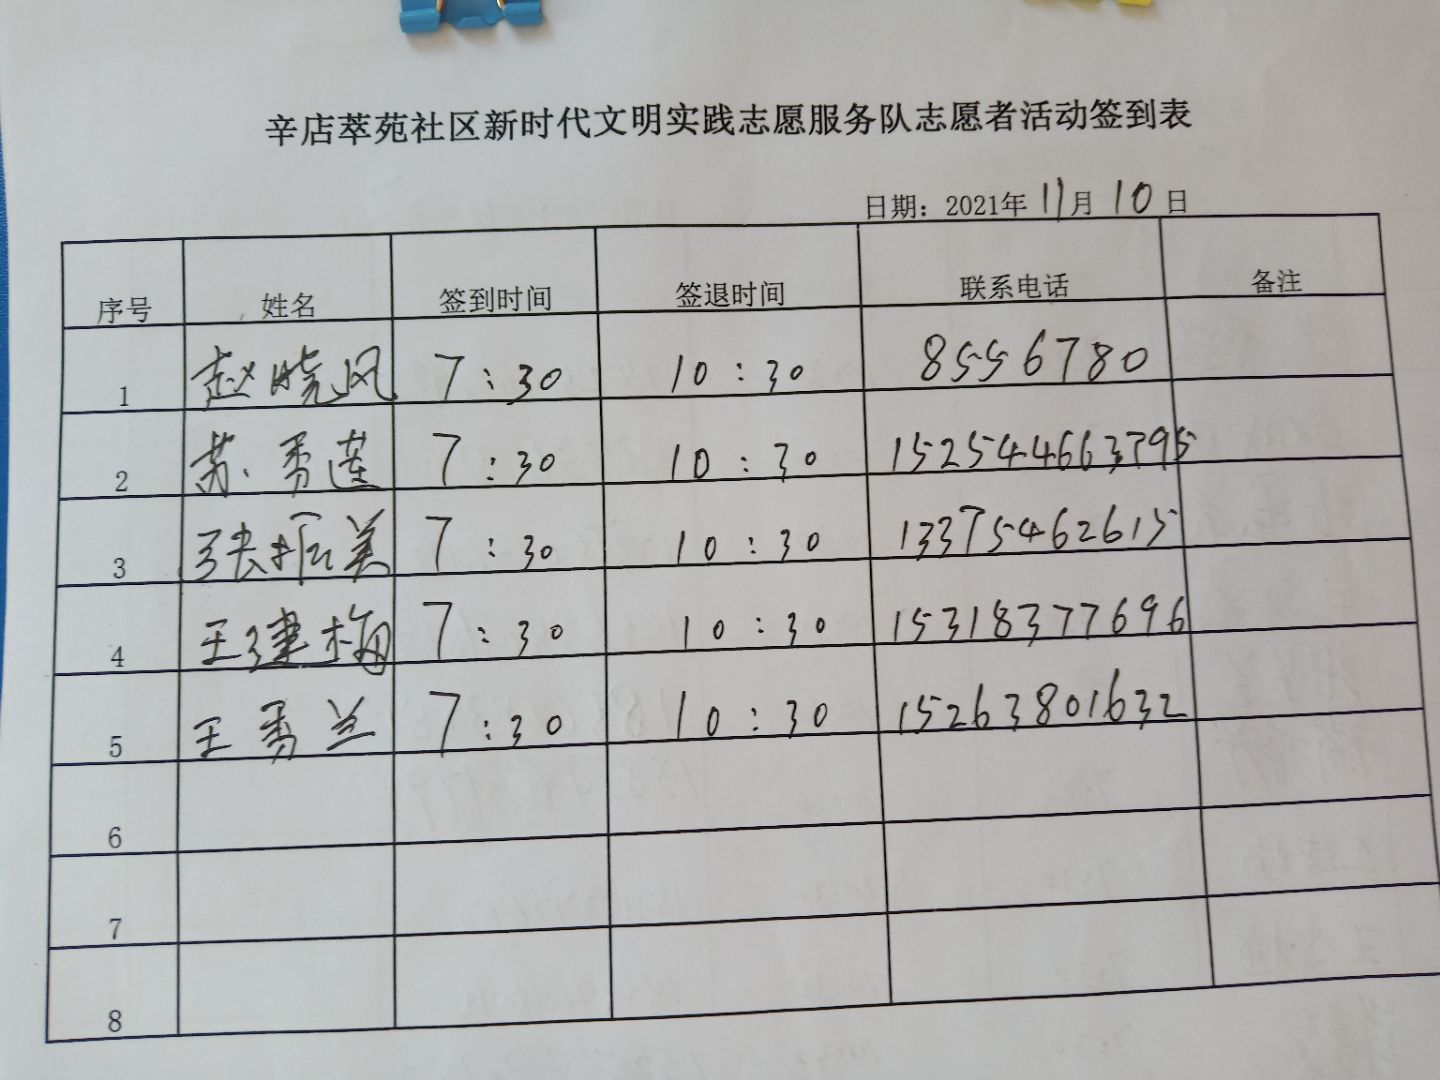 辛店萃苑社区新时代文明实践志愿服务队志愿者活动签到表
日期：2021年 11月 10 日
序号 姓名 签到时间 签退时间 联系电话 备注
1 赵晓风 7:30 10:30 8556780
2 苏秀莲 7:30 10:30 152544663795
3 张振美 7:30 10:30 13375462615
4 王建梅 7:30 10:30 15318377696
5 王秀兰 7:30 10:30 15263801632
6
7
8